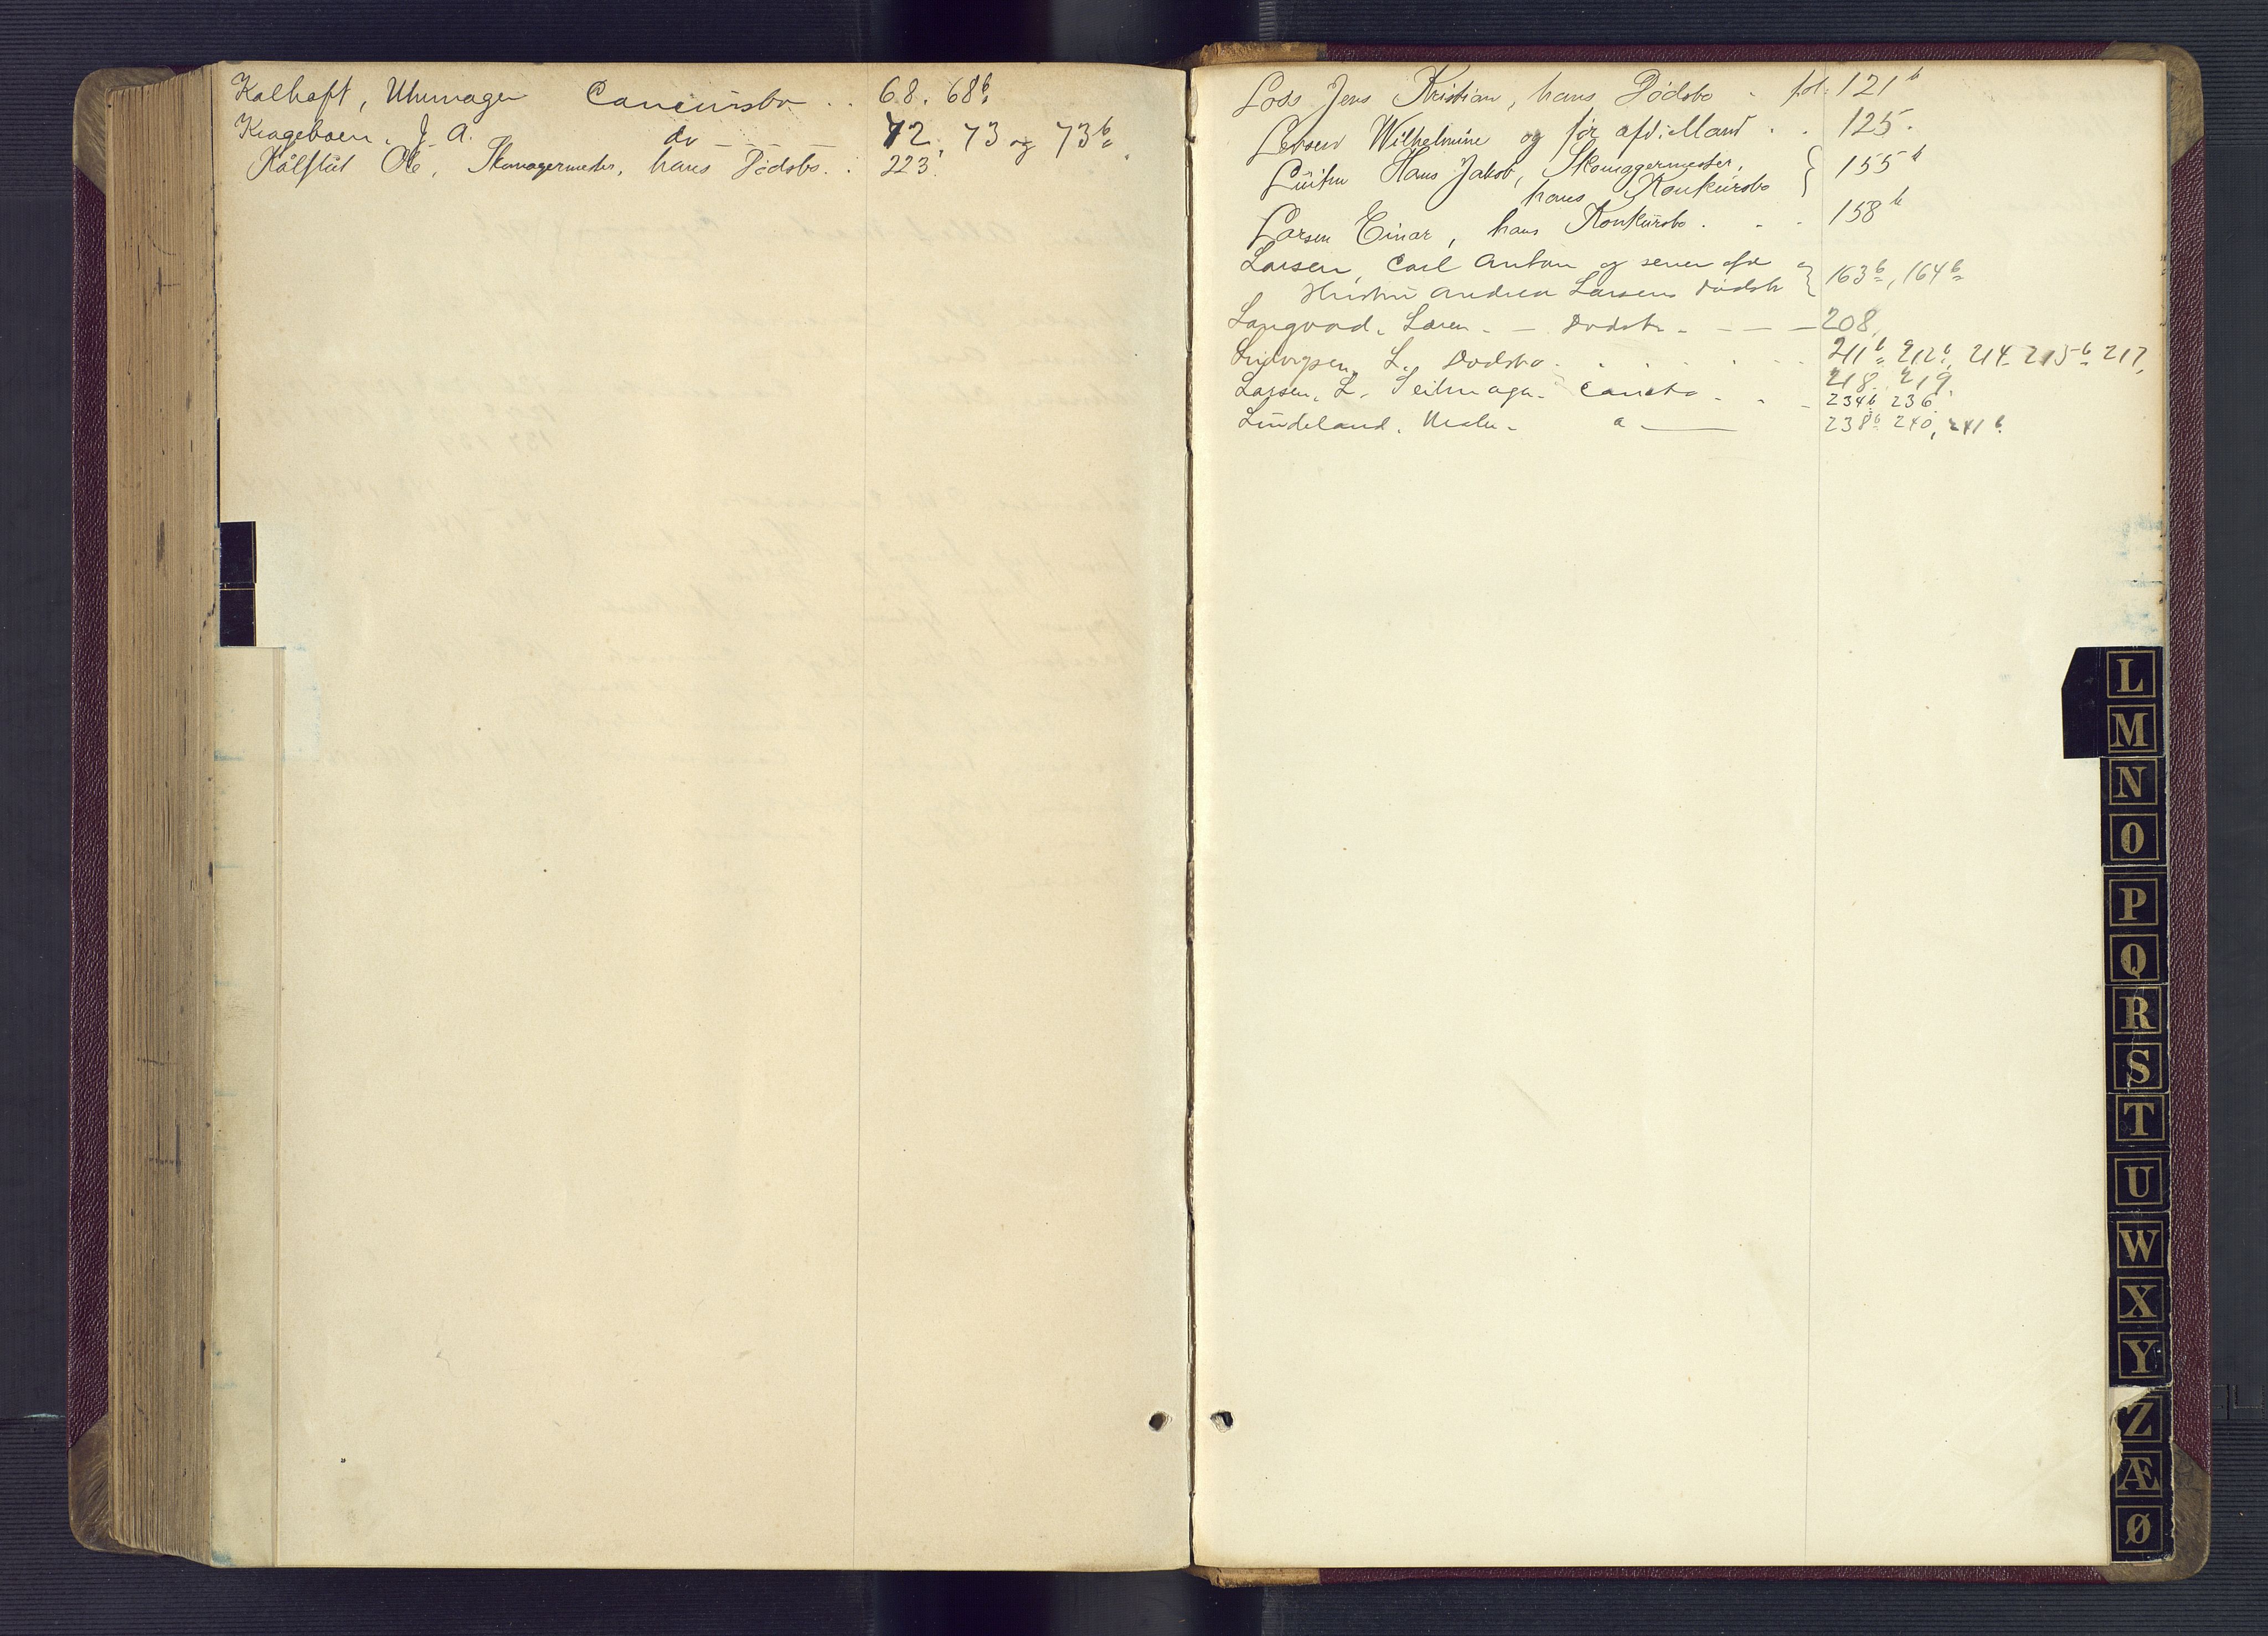 Kalhaft, Uhrmager Concursbo . . 68. 68b.
Krageboen, J. A. do 72. 73 og 73b.
Kålstad Ole, Skomagermester, hans Dödsbo. . 223.
Loss Jens Kristian, hans Dödsbo - fol: 121b
Wilhelmine og før afd: Mand . . 125.
Hans Jakob, Skomagermester, } 155b
hans Konkursbo
Larsen Einar, hans Konkursbo . - - 158b
Larsen, Carl Anton og senere afd } 163b, 164b
Hustru Andrea Larsens Dödsbo
Langvad, Søren - — Dödsbo - - — — 208,
Ludvigsen, L. Dödsbo . . . . . 211b 212b, 214 215b 217,
218, 219.
Larsen, L. Seilmager Concbo - - - 234b 236.
Lindeland, Maler - a — 238b 240, 241b.
L
M
N
O
P
Q
R
S
T
U
W
X
Y
Z
Æ
Ø